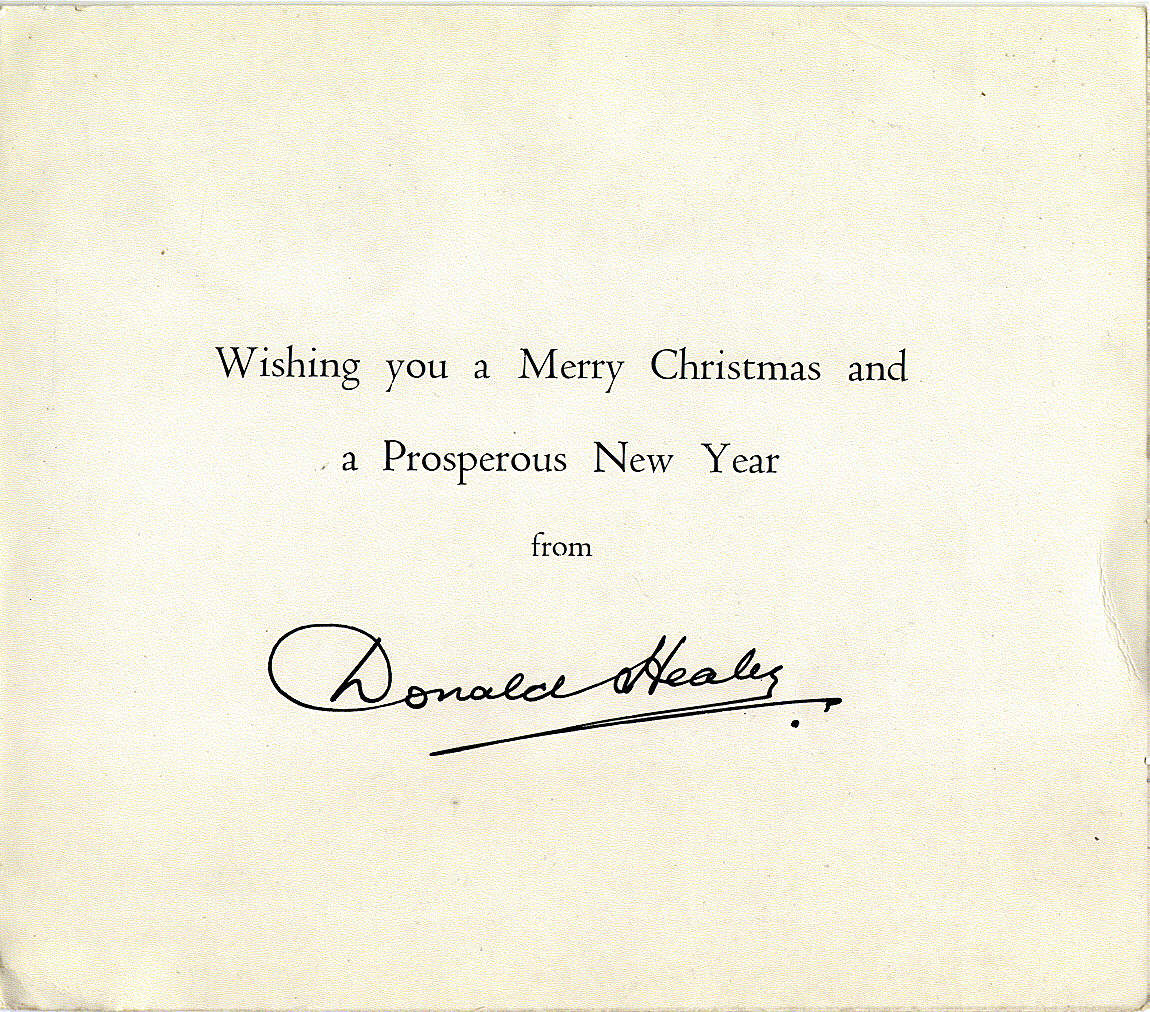 Wishing you a Merry Christmas and
a Prosperous New Year
from
Donald Healey